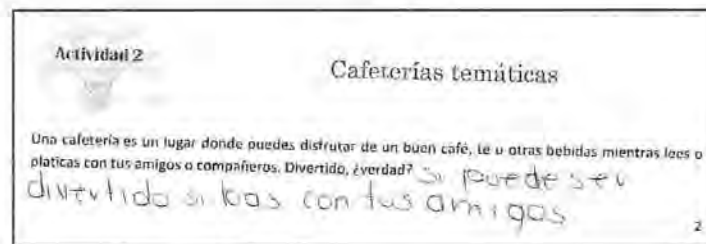 Actividad 2
Cafeterías temáticas
Una cafetería es un lugar donde puedes disfrutar de un buen café, te u otras bebidas mientras lees o
platicas con tus amigos o compañeros. Divertido, ¿verdad? Si puede ser
divertido si bas con tus amigos
2